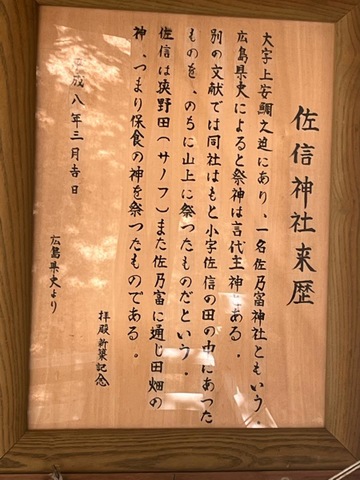 佐信神社来歴
大字上安鯛之迫にあり、一名佐乃富神社ともいう。
広島県史によると祭神は言代主神である。
別の文献では同社はもと小字佐信の田の中にあった
ものを、のちに山上に祭ったものだという。
佐信は狭野田(サノフ)また佐乃富に通じ田畑の
神、つまり保食の神を祭つたものである。
平成八年三月吉日
広島県史より
拝殿新築記念